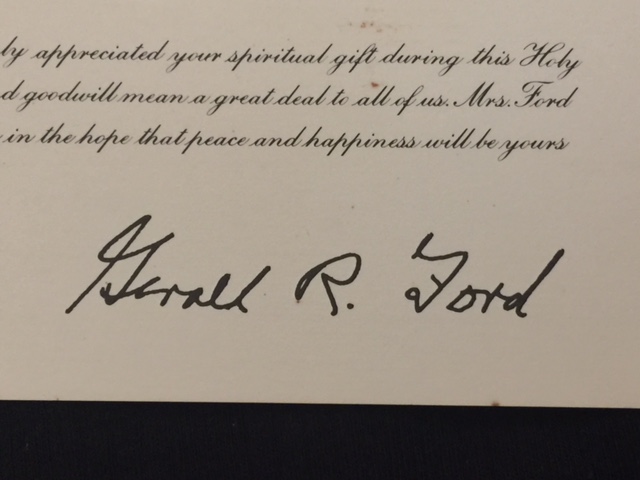 ly appreciated your spiritual gift during this Holy
d goodwill mean a great deal to all of us. Mrs. Ford
in the hope that peace and happiness will be yours
Gerald R. Ford